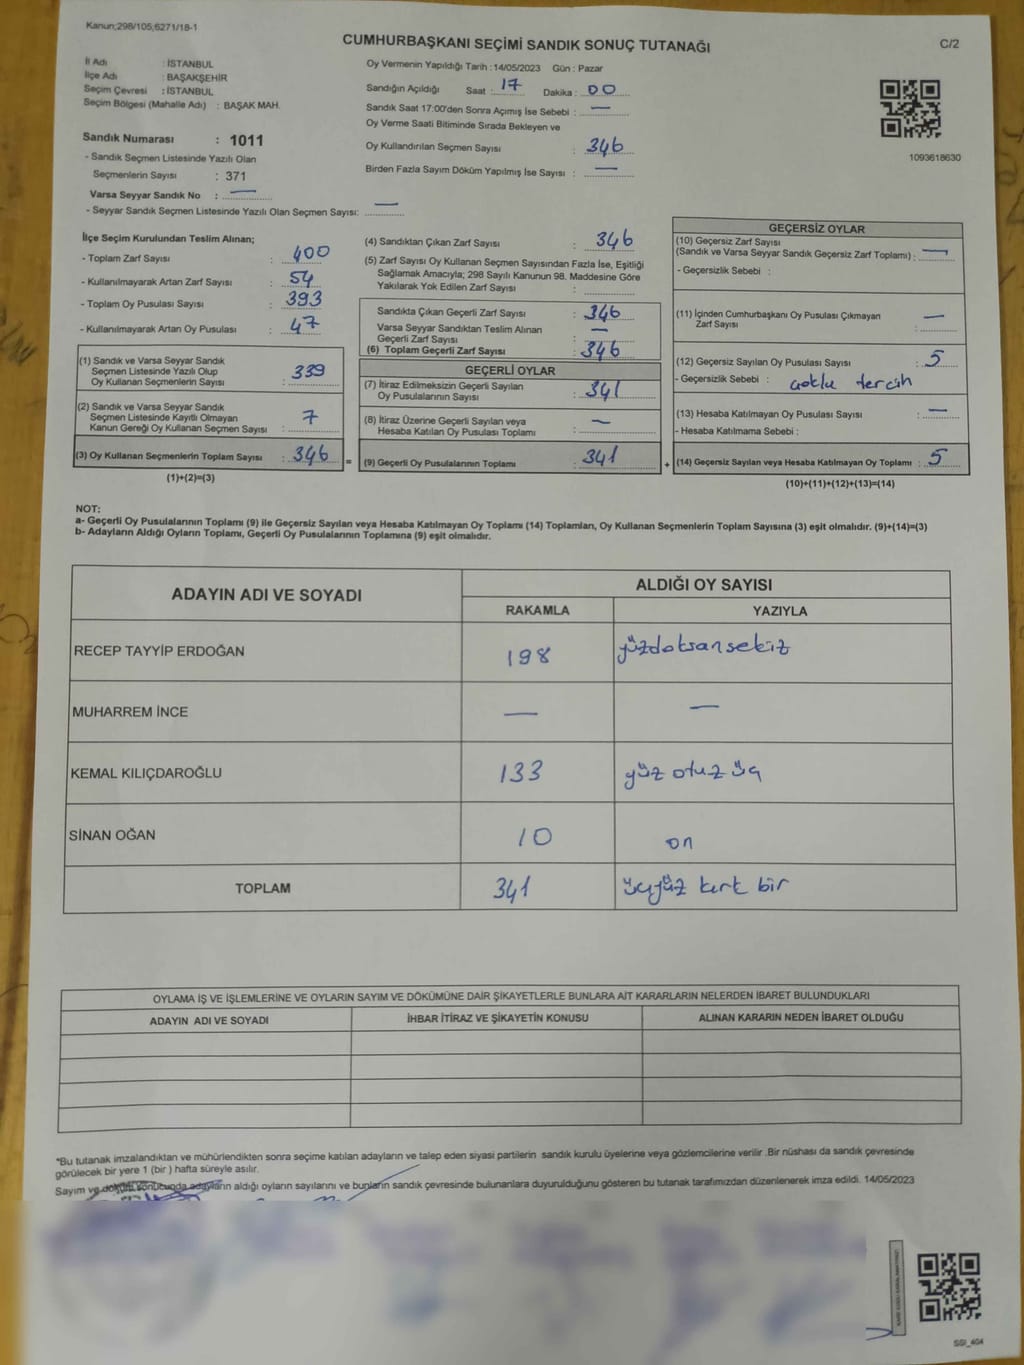 Kanun;298/105,6271/18-1
CUMHURBAŞKANI SEÇİMİ SANDIK SONUÇ TUTANAĞI
C/2
İl Adı : İSTANBUL
İlçe Adı : BAŞAKŞEHİR
Seçim Çevresi : İSTANBUL
Seçim Bölgesi (Mahalle Adı) : BAŞAK MAH.
Sandık Numarası : 1011
- Sandık Seçmen Listesinde Yazılı Olan
Seçmenlerin Sayısı : 371
Varsa Seyyar Sandık No : —
- Seyyar Sandık Seçmen Listesinde Yazılı Olan Seçmen Sayısı: —
Oy Vermenin Yapıldığı Tarih : 14/05/2023 Gün : Pazar
Sandığın Açıldığı Saat : 17 Dakika : 00
Sandık Saat 17:00'den Sonra Açımış İse Sebebi : —
Oy Verme Saati Bitiminde Sırada Bekleyen ve
Oy Kullandırılan Seçmen Sayısı : 346
Birden Fazla Sayım Döküm Yapılmış İse Sayısı : —
1093618630
İlçe Seçim Kurulundan Teslim Alınan;
- Toplam Zarf Sayısı : 400
- Kullanılmayarak Artan Zarf Sayısı : 54
- Toplam Oy Pusulası Sayısı : 393
- Kullanılmayarak Artan Oy Pusulası : 47
(1) Sandık ve Varsa Seyyar Sandık
Seçmen Listesinde Yazılı Olup
Oy Kullanan Seçmenlerin Sayısı : 339
(2) Sandık ve Varsa Seyyar Sandık
Seçmen Listesinde Kayıtlı Olmayan
Kanun Gereği Oy Kullanan Seçmen Sayısı : 7
(3) Oy Kullanan Seçmenlerin Toplam Sayısı : 346
(1)+(2)=(3)
(4) Sandıktan Çıkan Zarf Sayısı : 346
(5) Zarf Sayısı Oy Kullanan Seçmen Sayısından Fazla İse, Eşitliği
Sağlamak Amacıyla; 298 Sayılı Kanunun 98. Maddesine Göre
Yakılarak Yok Edilen Zarf Sayısı :
Sandıkta Çıkan Geçerli Zarf Sayısı : 346
Varsa Seyyar Sandıktan Teslim Alınan
Geçerli Zarf Sayısı : —
(6) Toplam Geçerli Zarf Sayısı : 346
GEÇERLİ OYLAR
(7) İtiraz Edilmeksizin Geçerli Sayılan
Oy Pusulalarının Sayısı : 341
(8) İtiraz Üzerine Geçerli Sayılan veya
Hesaba Katılan Oy Pusulası Toplamı : —
= (9) Geçerli Oy Pusulalarının Toplamı : 341
GEÇERSİZ OYLAR
(10) Geçersiz Zarf Sayısı
(Sandık ve Varsa Seyyar Sandık Geçersiz Zarf Toplamı) : —
- Geçersizlik Sebebi :
(11) İçinden Cumhurbaşkanı Oy Pusulası Çıkmayan
Zarf Sayısı : —
(12) Geçersiz Sayılan Oy Pusulası Sayısı : 5
- Geçersizlik Sebebi : çoklu tercih
(13) Hesaba Katılmayan Oy Pusulası Sayısı : —
- Hesaba Katılmama Sebebi :
+ (14) Geçersiz Sayılan veya Hesaba Katılmayan Oy Toplamı : 5
(10)+(11)+(12)+(13)=(14)
NOT:
a- Geçerli Oy Pusulalarının Toplamı (9) ile Geçersiz Sayılan veya Hesaba Katılmayan Oy Toplamı (14) Toplamları, Oy Kullanan Seçmenlerin Toplam Sayısına (3) eşit olmalıdır. (9)+(14)=(3)
b- Adayların Aldığı Oyların Toplamı, Geçerli Oy Pusulalarının Toplamına (9) eşit olmalıdır.
ADAYIN ADI VE SOYADI
ALDIĞI OY SAYISI
RAKAMLA YAZIYLA
RECEP TAYYİP ERDOĞAN 198 yüzdoksansekiz
MUHARREM İNCE — —
KEMAL KILIÇDAROĞLU 133 yüz otuz üç
SİNAN OĞAN 10 on
TOPLAM 341 üçyüz kırk bir
OYLAMA İŞ VE İŞLEMLERİNE VE OYLARIN SAYIM VE DÖKÜMÜNE DAİR ŞİKAYETLERLE BUNLARA AİT KARARLARIN NELERDEN İBARET BULUNDUKLARI
ADAYIN ADI VE SOYADI İHBAR İTİRAZ VE ŞİKAYETİN KONUSU ALINAN KARARIN NEDEN İBARET OLDUĞU
*Bu tutanak imzalandıktan ve mühürlendikten sonra seçime katılan adayların ve talep eden siyasi partilerin sandık kurulu üyelerine veya gözlemcilerine verilir .Bir nüshası da sandık çevresinde
görülecek bir yere 1 (bir ) hafta süreyle asılır.
Sayım ve döküm sonucunda adayların aldığı oyların sayılarını ve bunların sandık çevresinde bulunanlara duyurulduğunu gösteren bu tutanak tarafımızdan düzenlenerek imza edildi. 14/05/2023
SSI_404